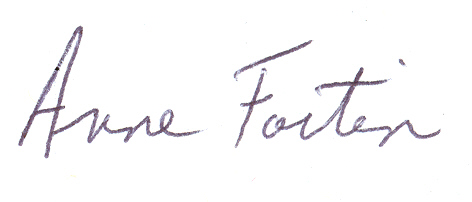 Anne Fortin